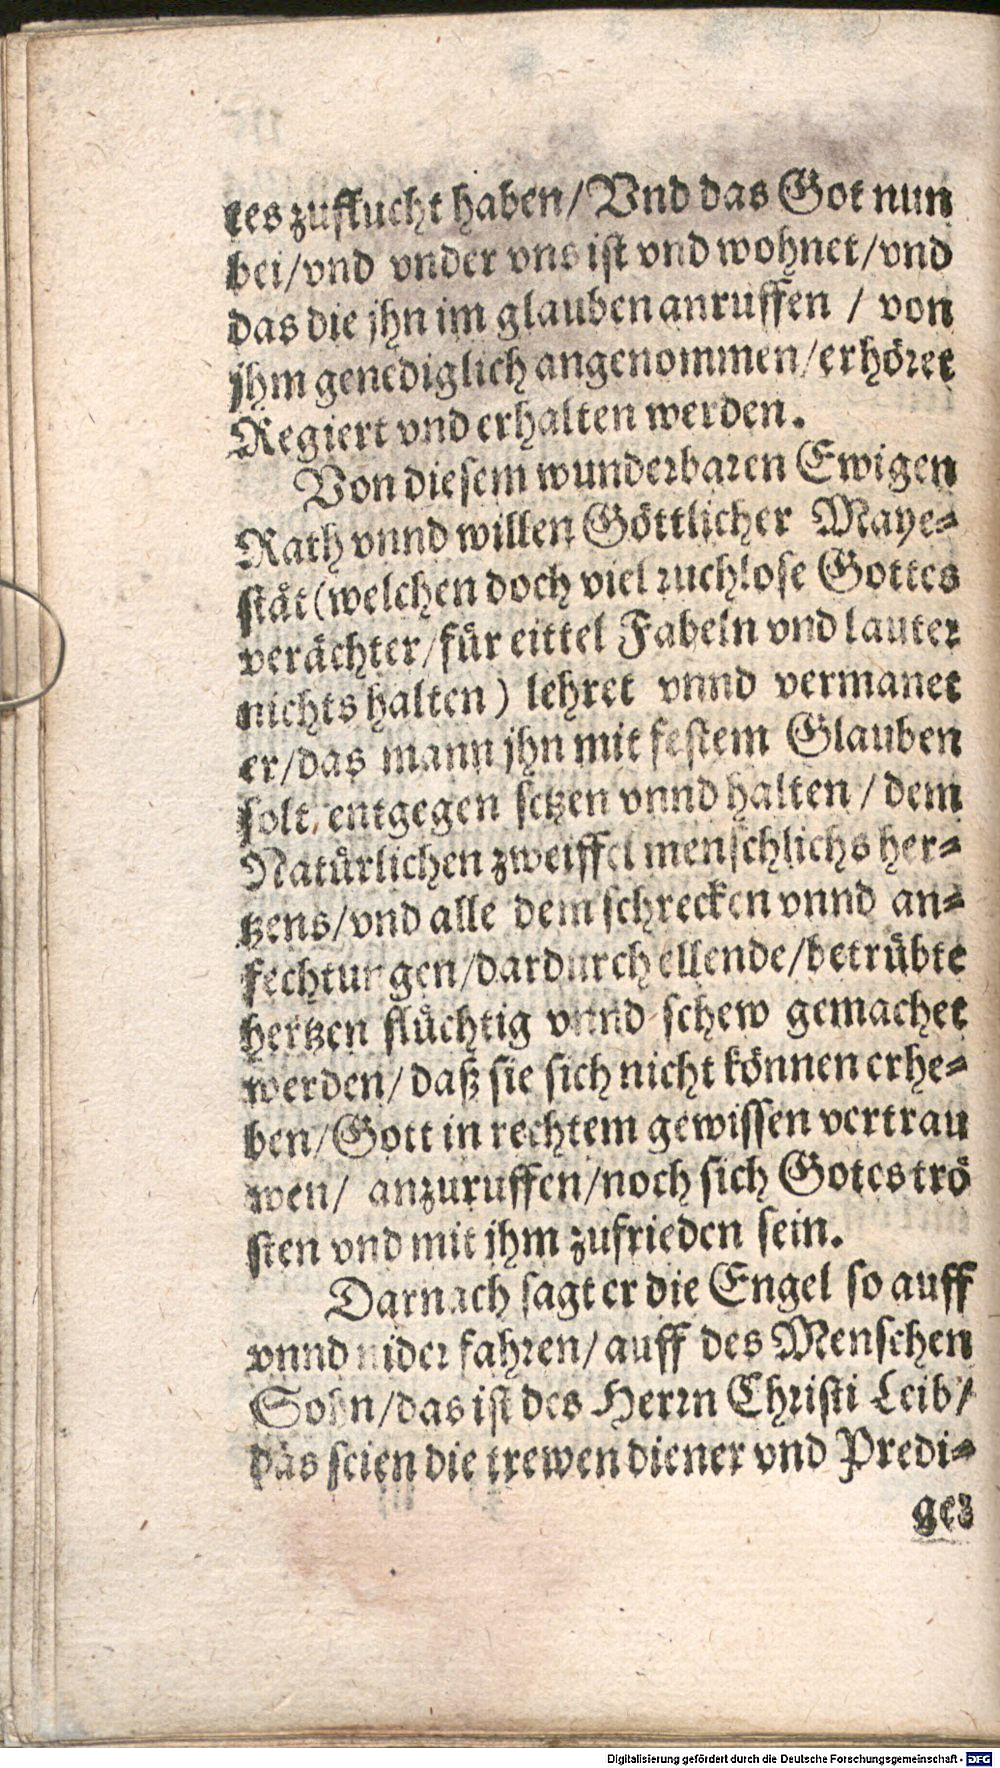 tes zuflucht haben/ Vnd das Got nun
bei/vnd vnder vns ist vnd wohnet/vnd
das die jhn im glauben anruffen / von
jhm genediglich angenommen/erhöret
Regiert vnd erhalten werden.
Von diesem wunderbaren Ewigen
Rath vnnd willen Göttlicher Maye-
stät (welchen doch viel ruchlose Gottes
verächter/für eittel Fabeln vnd lauter
nichts halten) lehret vnnd vermanet
er/das mann jhn mit festem Glauben
solt entgegen setzen vnnd halten / dem
Natürlichen zweiffel menschlichs her-
tzens/vnd alle dem schrecken vnnd an-
fechtungen/dardurch ellende/betrübte
hertzen flüchtig vnnd schew gemachet
werden/ daß sie sich nicht können erhe-
ben/Gott in rechtem gewissen vertrau
wen/ anzuruffen/noch sich Gotes trö
sten vnd mit jhm zufrieden sein.
Darnach sagt er die Engel so auff
vnnd nider fahren/ auff des Menschen
Sohn/das ist des Herrn Christi Leib/
das seien die trewen diener vnd Predi-
ger
Digitalisierung gefördert durch die Deutsche Forschungsgemeinschaft - DFG